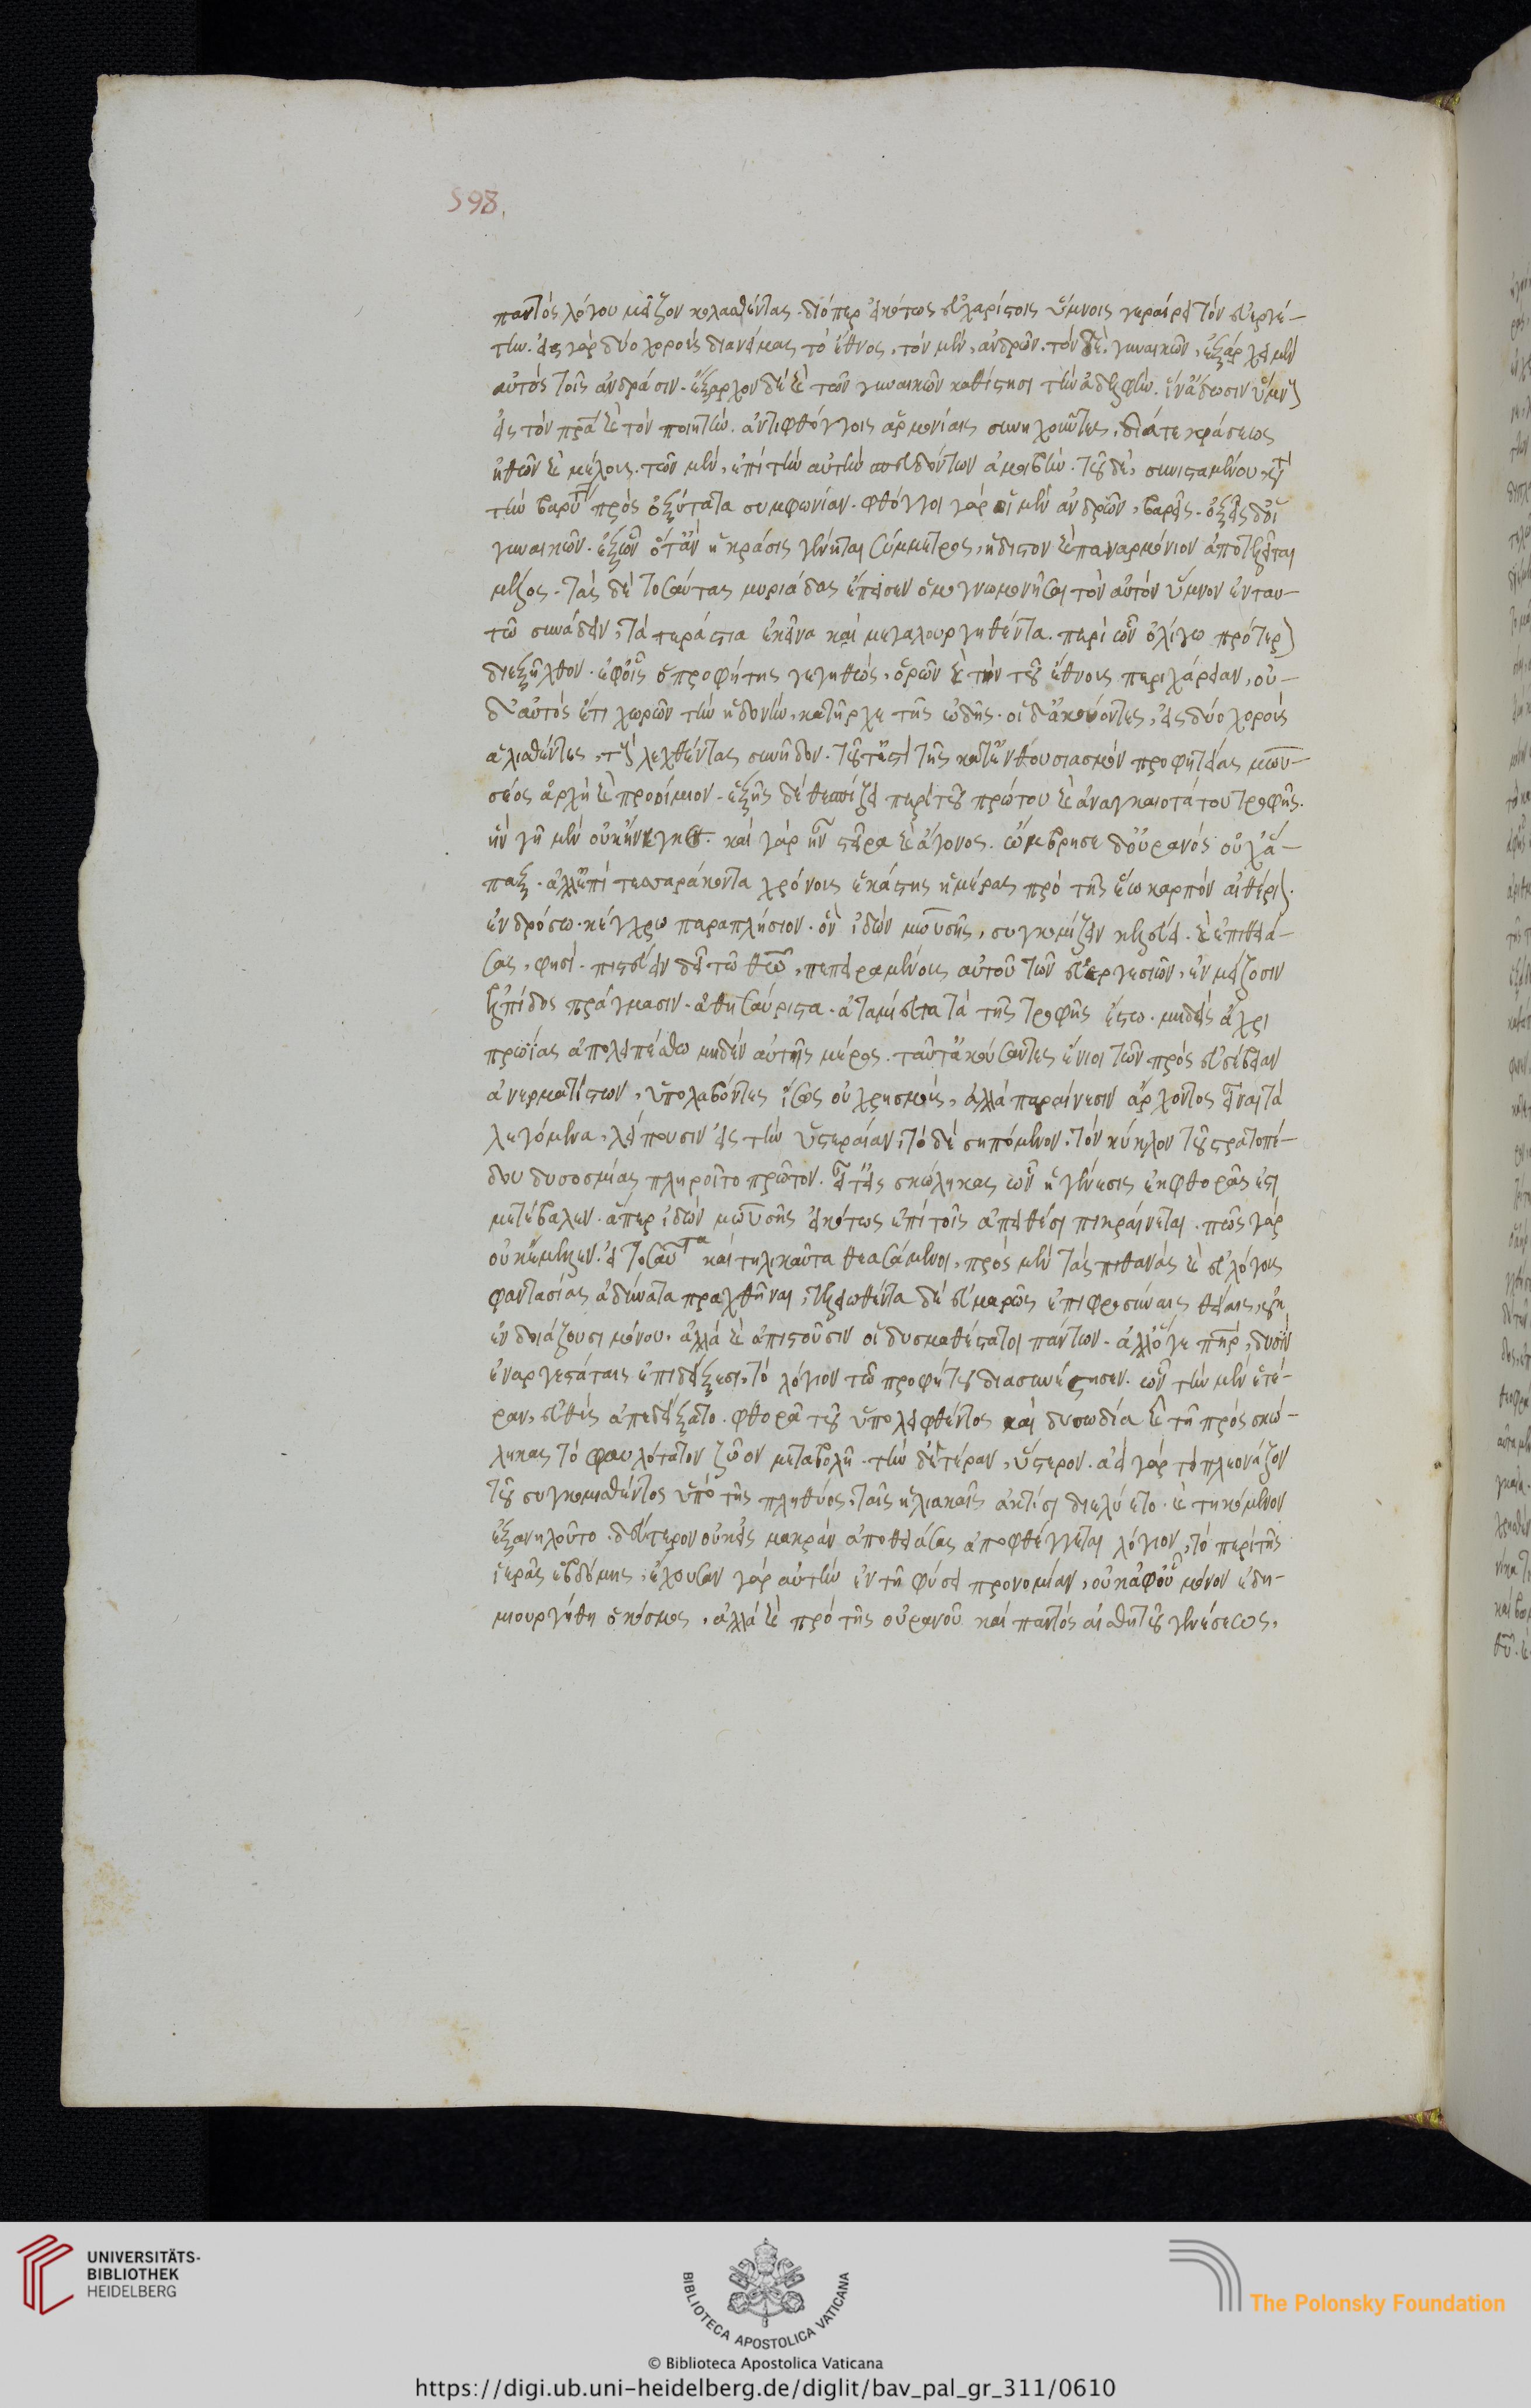 598.
παντὸς λόγου μεῖζον κολασθέντας. διόπερ εἰκότως εὐχαρίστοις ὕμνοις γεραίρει τὸν εὐεργέ-
την. εἰς γὰρ δύο χοροὺς διανείμας τὸ ἔθνος, τὸν μὲν, ἀνδρῶν. τὸν δὲ, γυναικῶν, ἐξάρχει μὲν
αὐτὸς τοῖς ἀνδράσιν. ἔξαρχον δὲ καὶ τῶν γυναικῶν καθίστησι τὴν ἀδελφήν. ἵν' ἄδωσιν ὕμνους
εἰς τὸν πρα καὶ τὸν ποιητὴν. ἀντιφθόγγοις ἁρμονίαις συνηχοῦντες, διά τε κράσεως
ἠθῶν καὶ μέλους. τῶν μὲν, ἐπὶ τὴν αὐτὴν σπευδόντων ἀμοιβὴν. τοῦ δὲ, συνισταμένου κατὰ
τὴν πρὸς ὀξύτατα συμφωνίαν. φθόγγοι γὰρ οἱ μὲν ἀνδρῶν, βαρεῖς. ὀξεῖς δ' οἱ
γυναικῶν. ἐξ ὧν ὅταν ἡ κράσις γένηται σύμμετρος, ἥδιστον καὶ παναρμόνιον ἀποτελεῖται
μέλος. τὰς δὲ τοσαύτας μυριάδας ἔπεισεν ὁμογνωμονῆσαι τὸν αὐτὸν ὕμνον ἐν ταυ-
τῶ συνάδειν, τὰ τεράστια ἐκεῖνα καὶ μεγαλουργηθέντα. περὶ ὧν ὀλίγω πρότερον
διεξῆλθον. ἐφ' οἷς ὁ προφήτης γεγηθὼς, ὁρῶν καὶ τὴν τοῦ ἔθνους περιχάρειαν, οὐ-
δ' αὐτὸς ἔτι χωρῶν τὴν ἡδονὴν, κατῆρχε τῆς ὠδῆς. οἱ δ' ἀκούοντες, εἰς δύο χοροὺς
ἁλισθέντες, τοὺς λεχθέντας συνῆδον. τοῦτ' ἐστὶ τῆς κατ' ἐνθουσιασμὸν προφητείας μωυ-
σέος ἀρχὴ καὶ προοίμιον. ἑξῆς δὲ θεσπίζει περὶ τοῦ πρώτου καὶ ἀναγκαιοτάτου τροφῆς.
ἣν γῆ μὲν οὐκ ἤνεγκε. καὶ γὰρ ἦν στεῖρα καὶ ἄγονος. ὤμβρησε δ' οὐρανὸς οὐχ ἅ-
παξ. ἀλλ' ἐπὶ τεσσαράκοντα χρόνοις ἑκάστης ἡμέρας πρὸ τῆς ἕω καρπὸν αἰθέριον.
ἐν δρόσω. κέγχρω παραπλήσιον. ὃν ἰδὼν μωυσῆς, συγκομίζειν κελεύει. καὶ ἐπιθειά-
σας, φησὶ. πιστεύειν δεῖ τῶ θεῶ, πεπειραμένους αὐτοῦ τῶν εὐεργεσιῶν, ἐν μείζοσιν
ἐλπίδος πράγμασιν. ἀθησαύριστα. ἀταμίευτα τὰ τῆς τροφῆς ἔστω. μηδεὶς ἄχρι
πρωίας ἀπολειπέσθω μηδὲν αὐτῆς μέρος. ταῦτ' ἀκούσαντες ἔνιοι τῶν πρὸς εὐσέβειαν
ἀνερματίστων, ὑπολαβόντες ἴσως οὐ χρησμοὺς, ἀλλὰ παραίνεσιν ἄρχοντος εἶναι τὰ
λεγόμενα, λείπουσιν εἰς τὴν ὑστεραίαν, τὸ δὲ σηπόμενον, τὸν κύκλον τοῦ στρατοπέ-
δου δυσοσμίας πληροῖ τὸ πρῶτον. εἶτ' εἰς σκώληκας ὧν ἡ γένεσις ἐκ φθορᾶς ἐστι
μετέβαλεν. ἅπερ ἰδὼν μωυσῆς εἰκότως ἐπὶ τοῖς ἀπειθέσι πικραίνεται. πῶς γὰρ
οὐκ ἔμελλεν. εἰ τοσαῦτα καὶ τηλικαῦτα θεασάμενοι, πρὸς μὲν τὰς πιθανὰς καὶ εὐλόγους
φαντασίας ἀδύνατα πραχθῆναι, τελειωθέντα δὲ εὐμαρῶς ἐπιφροσύναις θείαις, οὐκ
ἐνδοιάζουσι μόνον. ἀλλὰ καὶ ἀπιστοῦσιν οἱ δυσμαθέστατοι πάντων. ἀλλ' ὅγε πηρ, δυσὶν
ἐναργεστάταις ἐπιδείξεσι, τὸ λόγιον τοῦ προφήτου διασυνέστησεν. ὧν τὴν μὲν ἑτέ-
ραν, εὐθὺς ἀπεδείξατο. φθορᾶ τοῦ ὑπολειφθέντος καὶ δυσωδία καὶ τῆ πρὸς σκώ-
ληκας τὸ φαυλότατον ζῶον μεταβολῆ. τὴν δ' ἑτέραν, ὕστερον. ἀεὶ γὰρ τὸ πλεονάζον
τοῦ συγκομισθέντος ὑπὸ τῆς πληθύος, ταῖς ἡλιακαῖς ἀκτίσι διελύετο. καὶ τηκόμενον
ἐξανηλοῦτο. δεύτερον οὐκ εἰς μακρὰν ἀποθειάσας ἀποφθέγγεται λόγιον, τὸ περὶ τῆς
ἱερᾶς ἑβδόμης, ἔχουσαν γὰρ αὐτὴν ἐν τῆ φύσει προνομίαν, οὐκ ἀφ' οὗ μόνον ἐδη-
μιουργήθη ὁ κόσμος, ἀλλὰ καὶ πρὸ τῆς οὐρανοῦ καὶ παντὸς αἰσθητοῦ γενέσεως,
UNIVERSITÄTS-
BIBLIOTHEK
HEIDELBERG
BIBLIOTECA APOSTOLICA VATICANA
The Polonsky Foundation
© Biblioteca Apostolica Vaticana
https://digi.ub.uni-heidelberg.de/diglit/bav_pal_gr_311/0610